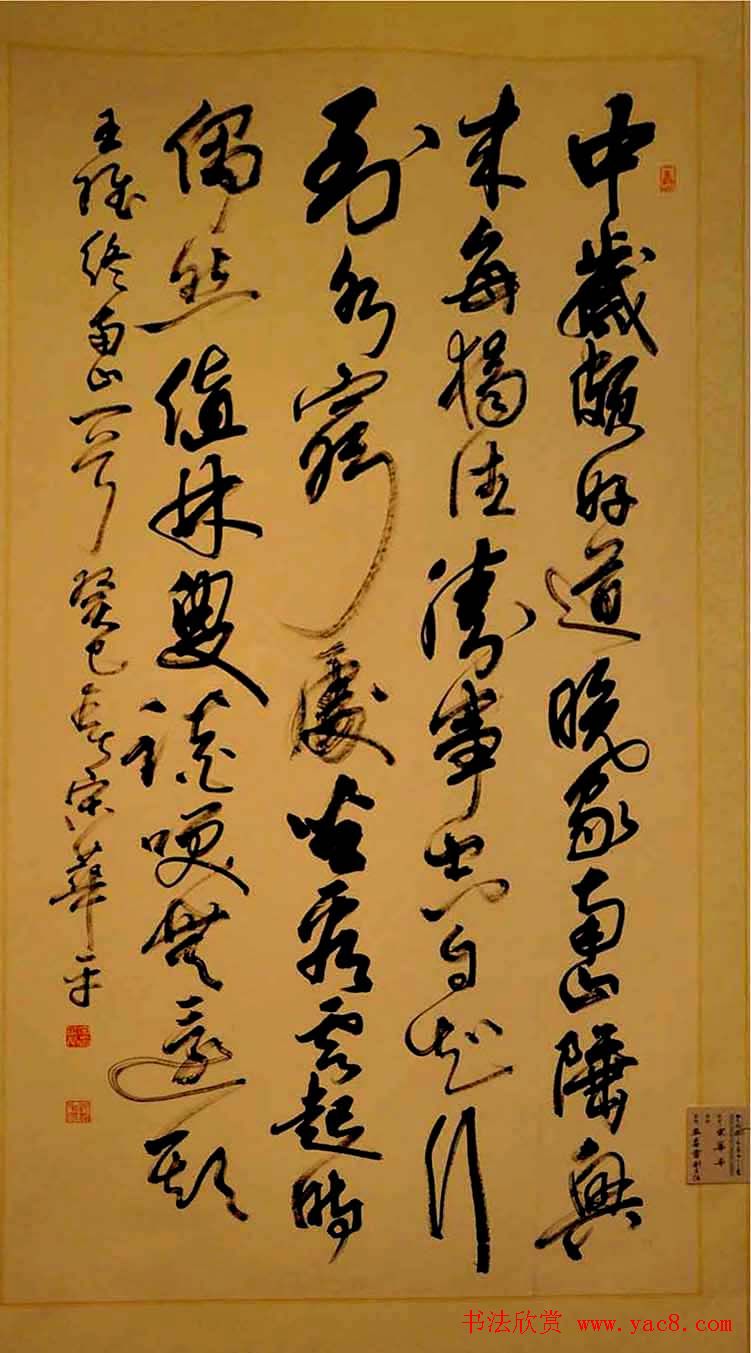 中歲頗好道晚家南山陲興
来每獨往勝事空自知行
到水窮處坐看雲起時
偶然值林叟談咲無還期
王維終南山一首癸巳宋華平
宋華平
书法欣赏 www.yac8.com